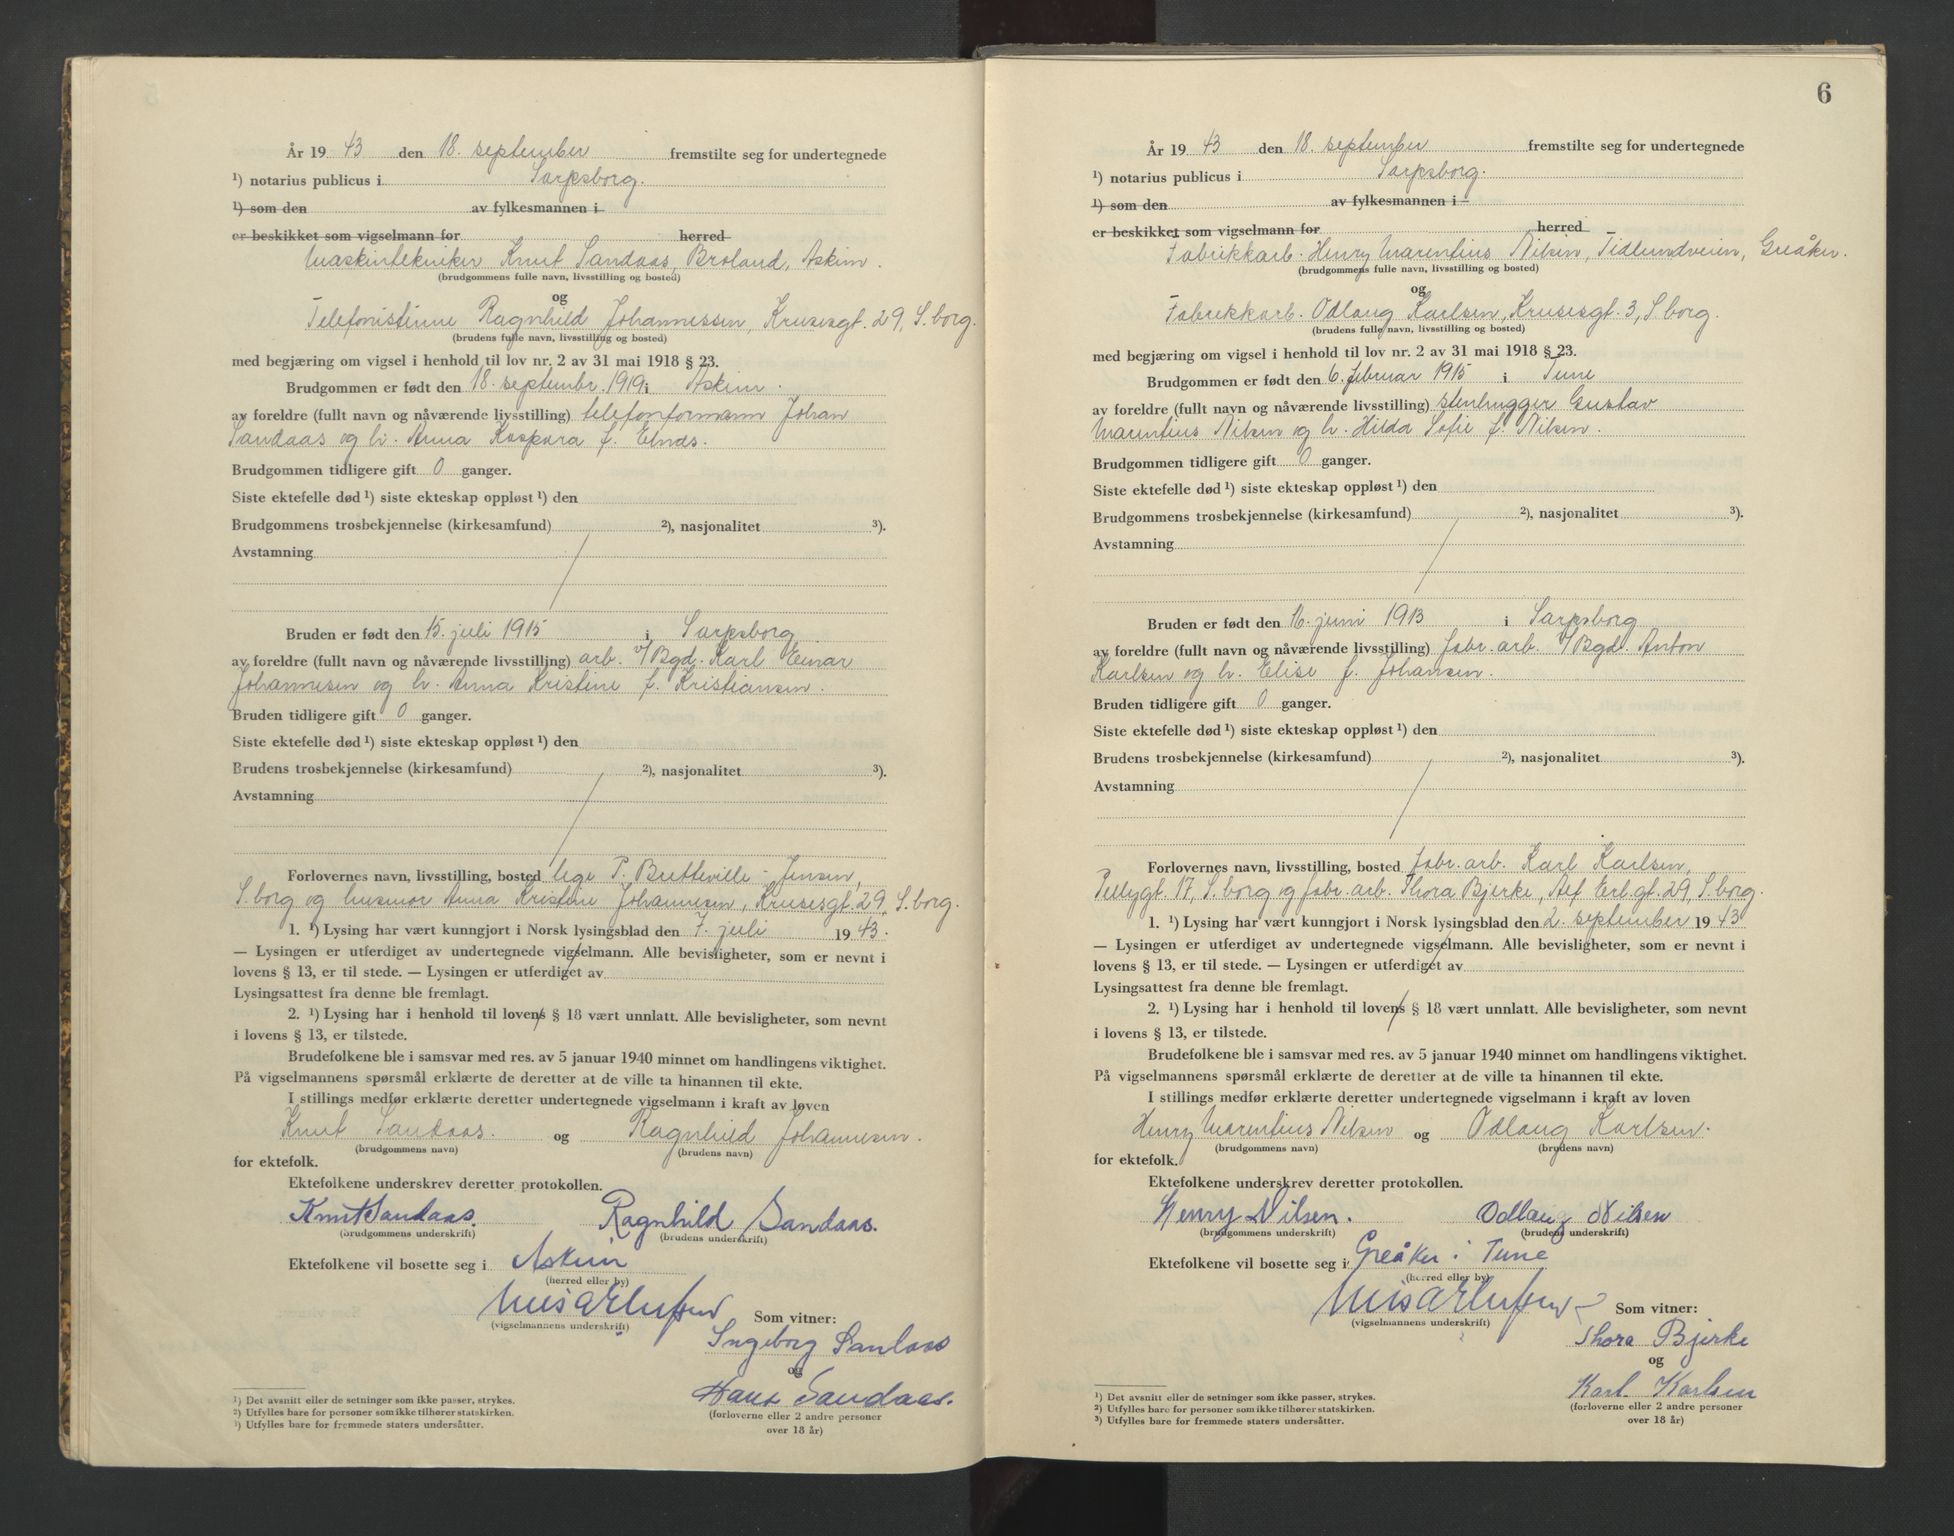 År 19 43 den 18. september fremstilte seg for undertegnede
¹) notarius publicus i Sarpsborg.
¹) som den av fylkesmannen i
er beskikket som vigselmann for herred
Maskintekniker Knut Sandaas, Askim.
(brudgommens fulle navn, livsstilling og bosted)
og
Telefonistinne Ragnhild Johannessen, Krusesgt. 29, S.borg.
(brudens fulle navn, livsstilling og bosted)
med begjæring om vigsel i henhold til lov nr. 2 av 31 mai 1918 § 23.
Brudgommen er født den 18. septembr. 1919 i Askim.
av foreldre (fullt navn og nåværende livsstilling) telefonformann Johan
Sandaas og h. Anna Kaspara f.
Brudgommen tidligere gift 0 ganger.
Siste ektefelle død ¹) siste ekteskap oppløst ¹) den
Brudgommens trosbekjennelse (kirkesamfund) ²), nasjonalitet ³).
Avstamning
Bruden er født den 15. juli 1915 i Sarpsborg
av foreldre (fullt navn og nåværende livsstilling) arb. v/Bgd. Karl Einar
Johannesen og h. Anna Kristine f. Kristiansen.
Bruden tidligere gift 0 ganger.
Siste ektefelle død ¹) siste ekteskap oppløst ¹) den
Brudens trosbekjennelse (kirkesamfund) ²), nasjonalitet ³).
Avstamning
Forlovernes navn, livsstilling, bosted lege P. Bretteville-Jensen,
S.borg og husmor Anna Kristine Johannesen, Krusesgt. 29, S.borg.
1. ¹) Lysing har vært kunngjort i Norsk lysingsblad den 7. juli 19 43.
— Lysingen er utferdiget av undertegnede vigselmann. Alle bevisligheter, som er nevnt i
lovens § 13, er til stede. — Lysingen er utferdiget av
Lysingsattest fra denne ble fremlagt.
2. ¹) Lysing har i henhold til lovens § 18 vært unnlatt. Alle bevisligheter, som nevnt
i lovens § 13, er tilstede.
Brudefolkene ble i samsvar med res. av 5 januar 1940 minnet om handlingens viktighet.
På vigselmannens spørsmål erklærte de deretter at de ville ta hinannen til ekte.
I stillings medfør erklærte deretter undertegnede vigselmann i kraft av loven
Knut Sandaas. og Ragnhild Johannesen.
(brudgommens navn) (brudens navn)
for ektefolk.
Ektefolkene underskrev deretter protokollen.
Knut Sandaas. Ragnhild Sandaas.
(brudgommens underskrift) (brudens underskrift)
Ektefolkene vil bosette seg i Askim
(herred eller by)
(vigselmannens underskrift) Som vitner:
Ingeborg Sandaas
og
Hans Sandaas.
(forloverne eller 2 andre personer
over 18 år)
¹) Det avsnitt eller de setninger som ikke passer, strykes.
²) Utfylles bare for personer som ikke tilhører statskirken.
³) Utfylles bare for fremmede staters undersåtter.
6
År 19 43 den 18. september fremstilte seg for undertegnede
¹) notarius publicus i Sarpsborg.
¹) som den av fylkesmannen i
er beskikket som vigselmann for herred
Fabrikkarb. Henry Marentius Nilsen, Tidlundveien, Greåker.
(brudgommens fulle navn, livsstilling og bosted)
og
Fabrikkarb. Odlaug Karlsen, Krusesgt. 3, S.borg.
(brudens fulle navn, livsstilling og bosted)
med begjæring om vigsel i henhold til lov nr. 2 av 31 mai 1918 § 23.
Brudgommen er født den 6. februar 1915 i Tune
av foreldre (fullt navn og nåværende livsstilling) stenhugger Gustav
Marentius Nilsen og h. Hilda Sofie f. Nilsen.
Brudgommen tidligere gift 0 ganger.
Siste ektefelle død ¹) siste ekteskap oppløst ¹) den
Brudgommens trosbekjennelse (kirkesamfund) ²), nasjonalitet ³).
Avstamning
Bruden er født den 16. juni 1913 i Sarpsborg
av foreldre (fullt navn og nåværende livsstilling) fabr. arb. v/Bgd. Anton
Karlsen og h. Elise f. Johansen.
Bruden tidligere gift 0 ganger.
Siste ektefelle død ¹) siste ekteskap oppløst ¹) den
Brudens trosbekjennelse (kirkesamfund) ²), nasjonalitet ³).
Avstamning
Forlovernes navn, livsstilling, bosted fabr. arb. Karl Karlsen,
Pellygt. 17, S.borg og fabr. arb. Thora Bjerke, 29, S.borg.
1. ¹) Lysing har vært kunngjort i Norsk lysingsblad den 2. september 19 43
— Lysingen er utferdiget av undertegnede vigselmann. Alle bevisligheter, som er nevnt i
lovens § 13, er til stede. — Lysingen er utferdiget av
Lysingsattest fra denne ble fremlagt.
2. ¹) Lysing har i henhold til lovens § 18 vært unnlatt. Alle bevisligheter, som nevnt
i lovens § 13, er tilstede.
Brudefolkene ble i samsvar med res. av 5 januar 1940 minnet om handlingens viktighet.
På vigselmannens spørsmål erklærte de deretter at de ville ta hinannen til ekte.
I stillings medfør erklærte deretter undertegnede vigselmann i kraft av loven
Henry Marentius Nilsen og Odlaug Karlsen.
(brudgommens navn) (brudens navn)
for ektefolk.
Ektefolkene underskrev deretter protokollen.
Henry Nilsen. Odlaug Nilsen
(brudgommens underskrift) (brudens underskrift)
Ektefolkene vil bosette seg i Greåker i Tune
(herred eller by)
(vigselmannens underskrift) Som vitner:
Thora Bjerke
og
Karl Karlsen
(forloverne eller 2 andre personer
over 18 år)
¹) Det avsnitt eller de setninger som ikke passer, strykes.
²) Utfylles bare for personer som ikke tilhører statskirken.
³) Utfylles bare for fremmede staters undersåtter.